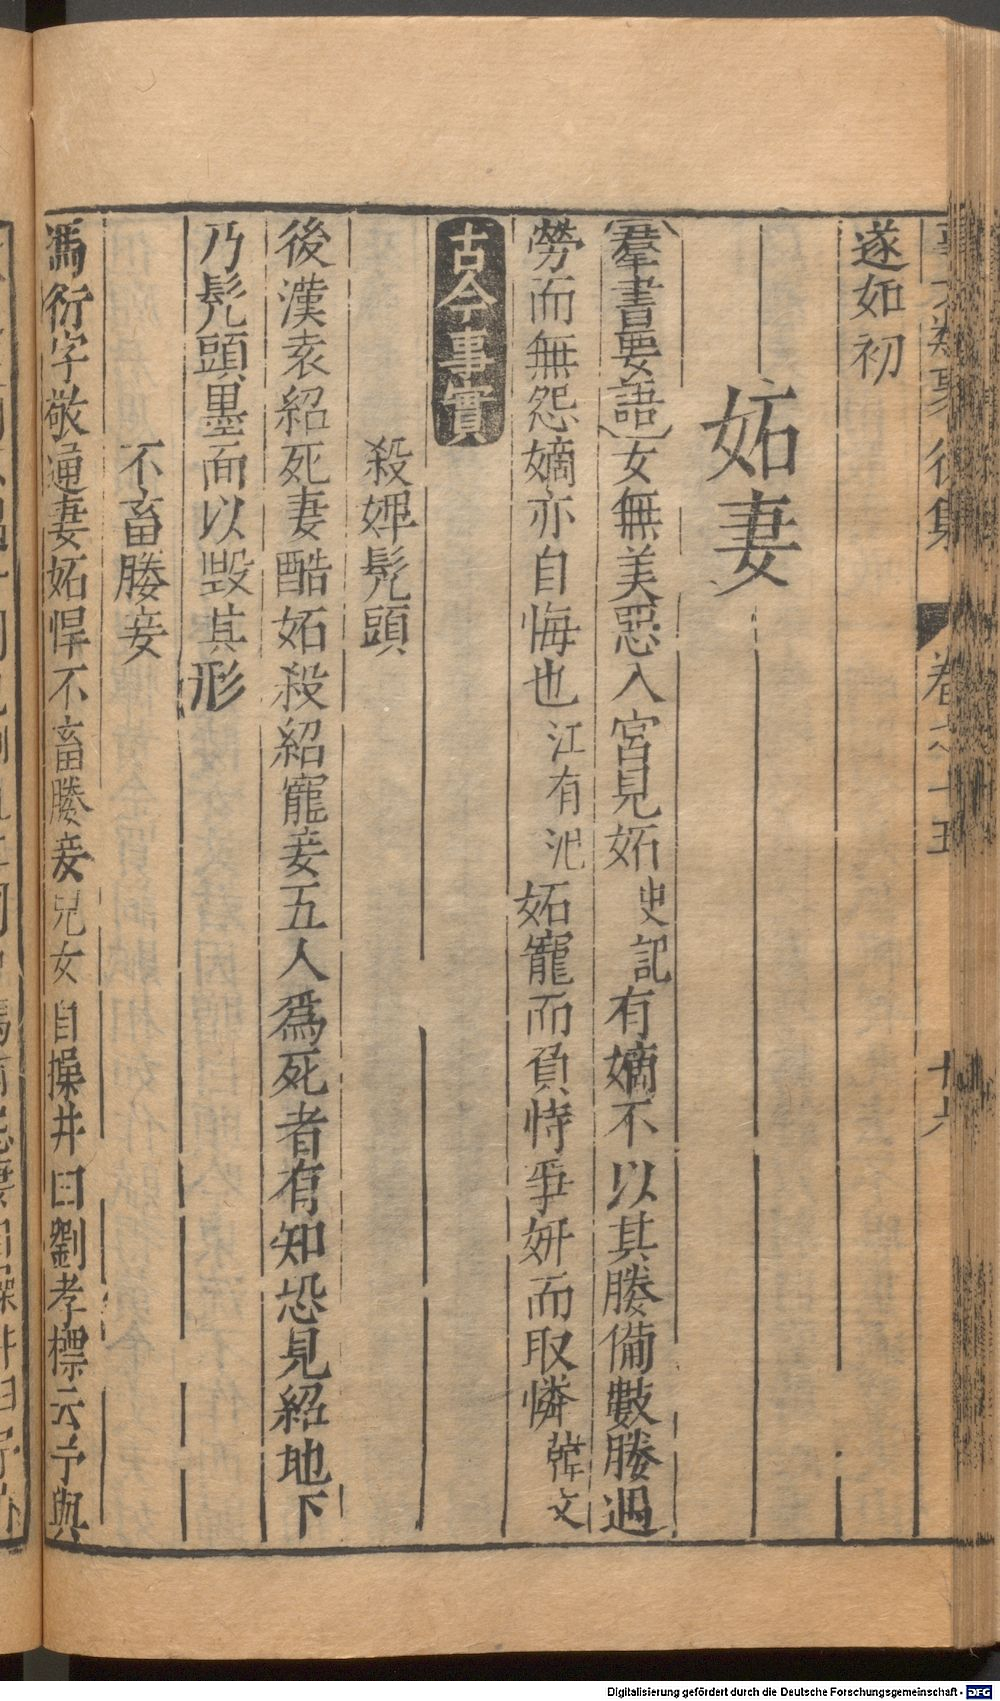 遂如初
妬妻
羣書要語女無美惡入宮見妬史記有嫡不以其媵備數媵遇
勞而無怨嫡亦自悔也江有汜妬寵而負恃爭妍而取憐韓文
古今事實
殺婢髠頭
後漢袁紹死妻酷妬殺紹寵妾五人爲死者有知恐見紹地下
乃髠頭墨面以毀其形
不畜媵妾
馮衍字敬通妻妬悍不畜媵妾兒女自操井臼劉孝標云予與
Digitalisierung gefördert durch die Deutsche Forschungsgemeinschaft - DFG